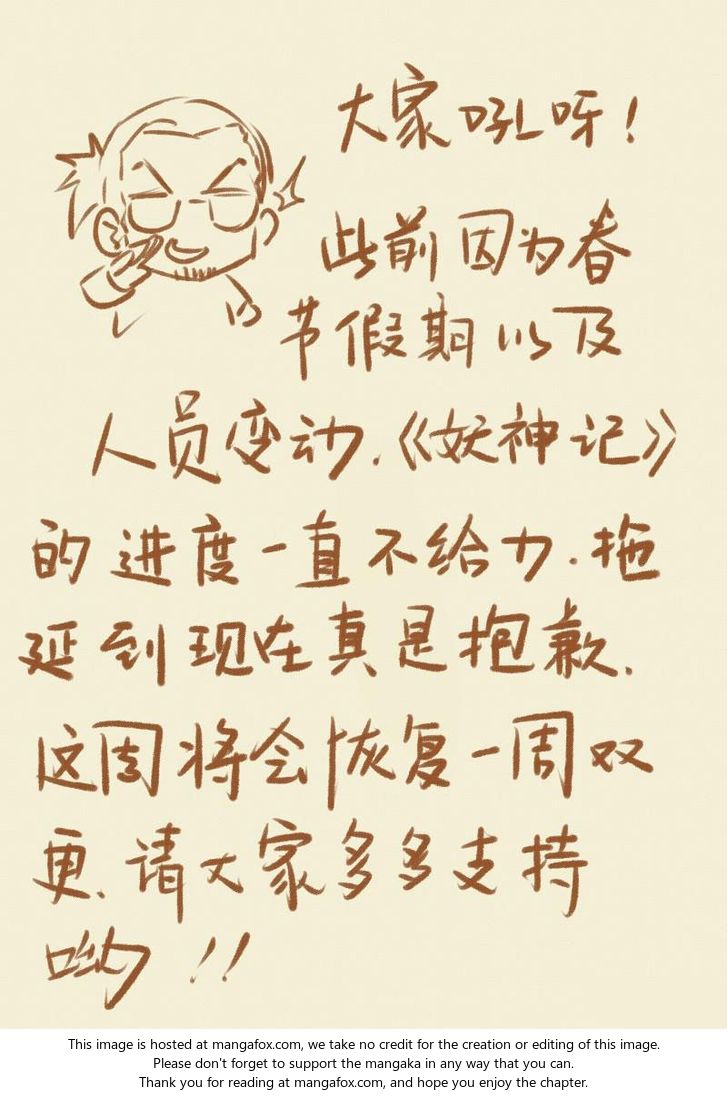 大家吼呀！
此前因为春
节假期以及
人员变动.《妖神记》
的进度一直不给力.拖
延到现在真是抱歉.
这周将会恢复一周双
更.请大家多多支持
呦!!
This image is hosted at mangafox.com, we take no credit for the creation or editing of this image.
Please don't forget to support the mangaka in any way that you can.
Thank you for reading at mangafox.com, and hope you enjoy the chapter.